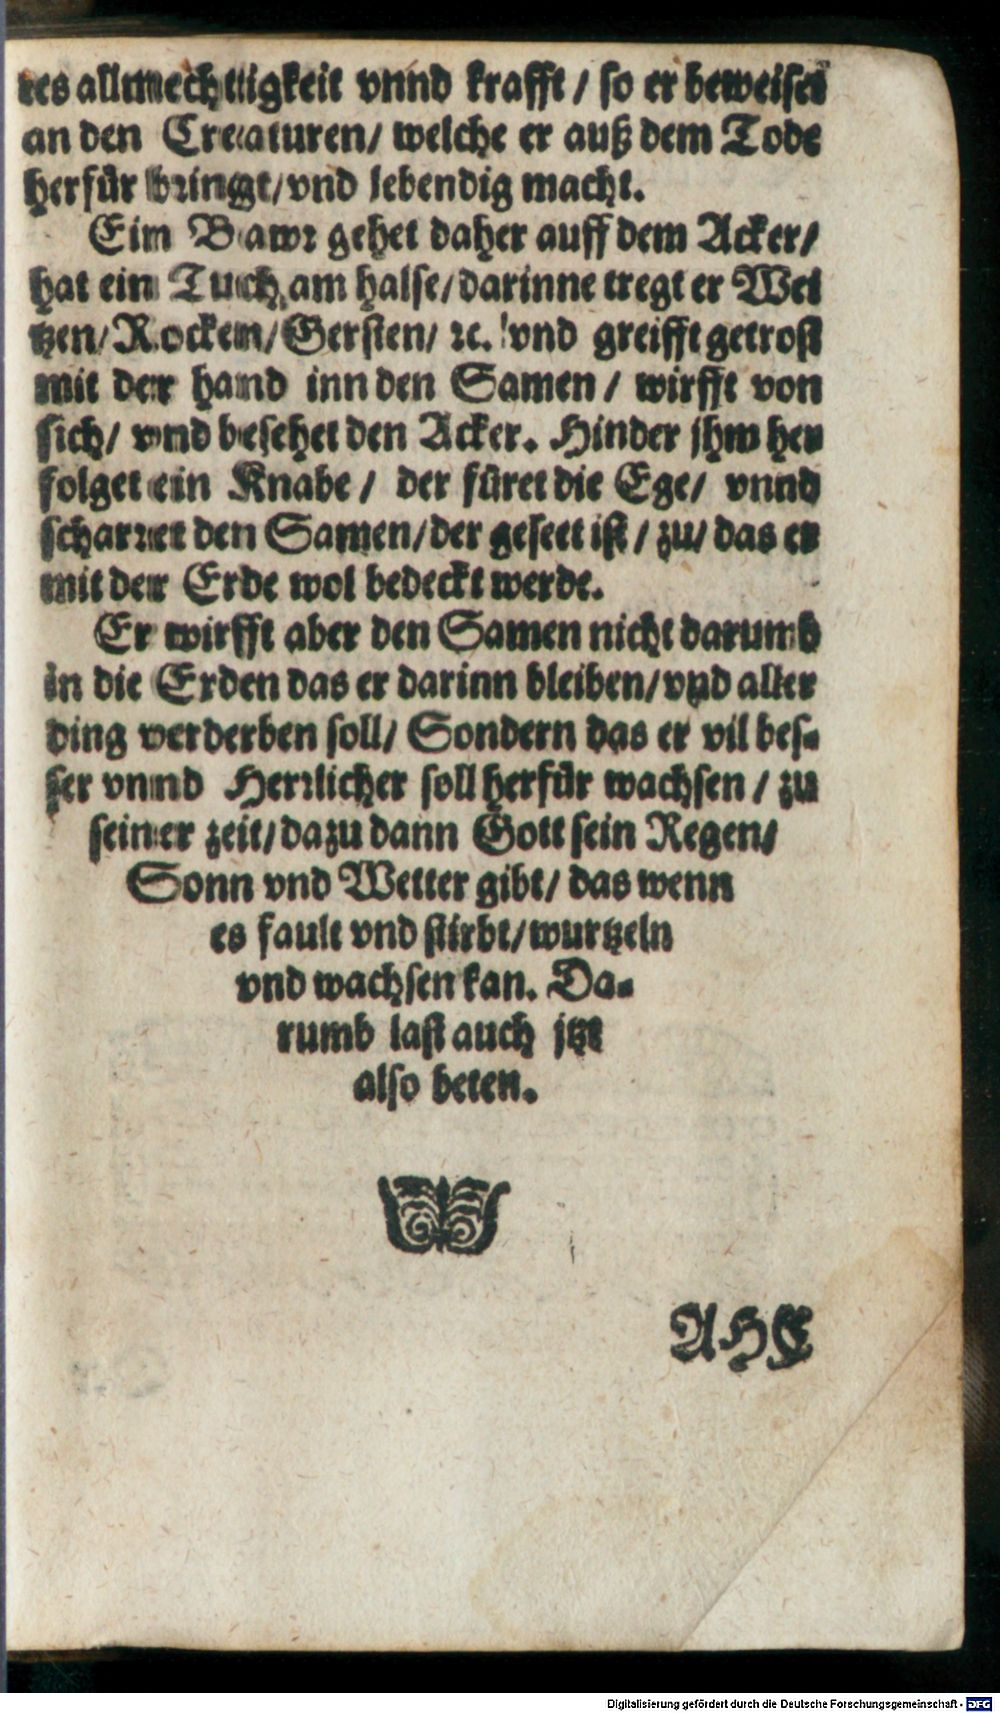 tes allmechttigkeit vnnd krafft / so er beweiset
an den Creaturen / welche er auß dem Tode
herfür bringt / vnd lebendig macht.
Ein Bawr gehet daher auff dem Acker /
hat ein Tuch am halse / darinne tregt er Wei
tzen / Rocken / Gersten / ꝛc. vnd greifft getrost
mit der hand inn den Samen / wirfft von
sich / vnd besehet den Acker. Hinder jhm her
folget ein Knabe / der füret die Ege / vnnd
scharret den Samen / der geseet ist / zu / das er
mit der Erde wol bedeckt werde.
Er wirfft aber den Samen nicht darumb
in die Erden das er darinn bleiben / vnd aller
ding verderben soll / Sondern das er vil bes-
ser vnnd Herrlicher soll herfür wachsen / zu
seiner zeit / dazu dann Gott sein Regen /
Sonn vnd Wetter gibt / das wenn
es fault vnd stirbt / wurtzeln
vnd wachsen kan. Da-
rumb last auch jtzt
also beten.
AHE
Digitalisierung gefördert durch die Deutsche Forschungsgemeinschaft - DFG